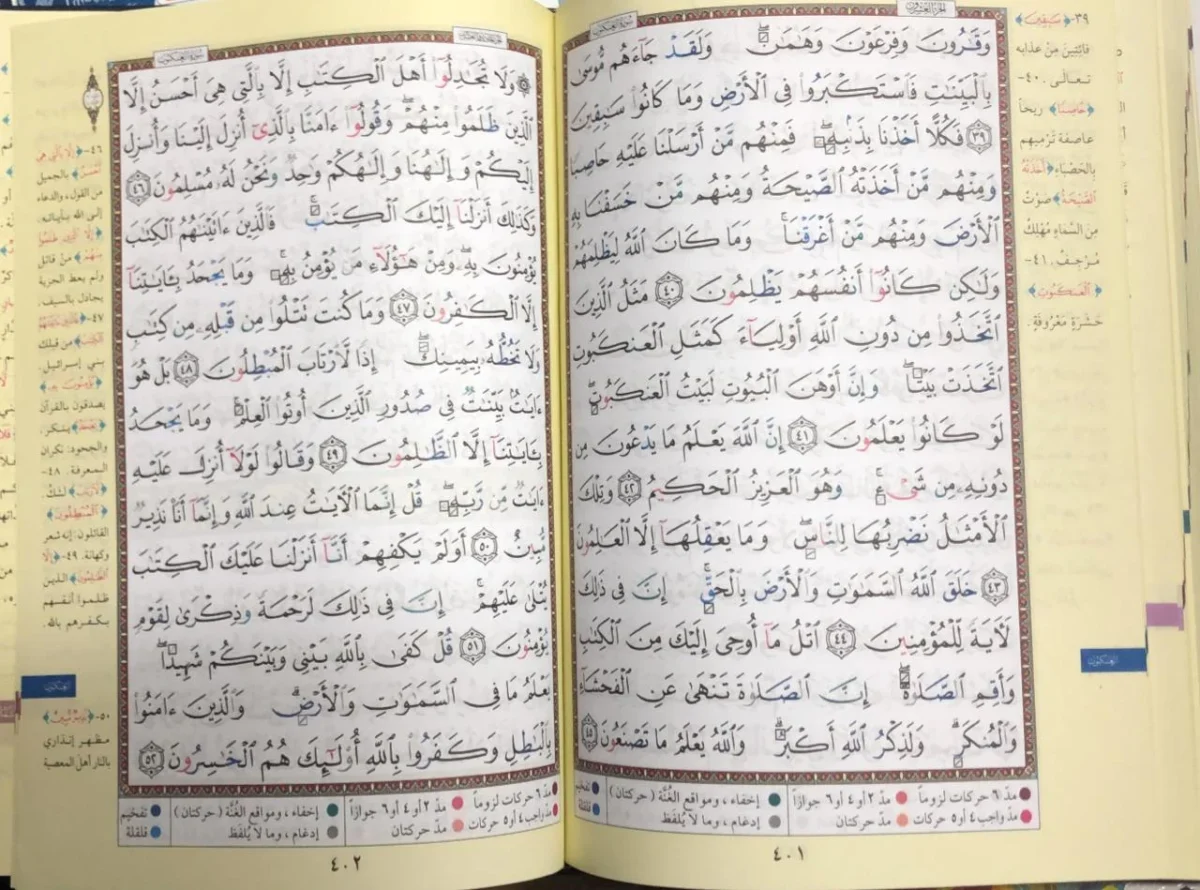 سُورَةُ العَنكَبُوتِ
الجُزْءُ العِشْرُونَ
وَقَٰرُونَ وَفِرْعَوْنَ وَهَٰمَٰنَ ۖ وَلَقَدْ جَآءَهُم مُّوسَىٰ
بِٱلْبَيِّنَٰتِ فَٱسْتَكْبَرُوا۟ فِى ٱلْأَرْضِ وَمَا كَانُوا۟ سَٰبِقِينَ
٣٩ فَكُلًّا أَخَذْنَا بِذَنۢبِهِۦ ۖ فَمِنْهُم مَّنْ أَرْسَلْنَا عَلَيْهِ حَاصِبًا
وَمِنْهُم مَّنْ أَخَذَتْهُ ٱلصَّيْحَةُ وَمِنْهُم مَّنْ خَسَفْنَا بِهِ
ٱلْأَرْضَ وَمِنْهُم مَّنْ أَغْرَقْنَا ۚ وَمَا كَانَ ٱللَّهُ لِيَظْلِمَهُمْ
وَلَٰكِن كَانُوٓا۟ أَنفُسَهُمْ يَظْلِمُونَ ٤٠ مَثَلُ ٱلَّذِينَ
ٱتَّخَذُوا۟ مِن دُونِ ٱللَّهِ أَوْلِيَآءَ كَمَثَلِ ٱلْعَنكَبُوتِ
ٱتَّخَذَتْ بَيْتًا ۖ وَإِنَّ أَوْهَنَ ٱلْبُيُوتِ لَبَيْتُ ٱلْعَنكَبُوتِ ۖ
لَوْ كَانُوا۟ يَعْلَمُونَ ٤١ إِنَّ ٱللَّهَ يَعْلَمُ مَا يَدْعُونَ مِن
دُونِهِۦ مِن شَىْءٍ ۚ وَهُوَ ٱلْعَزِيزُ ٱلْحَكِيمُ ٤٢ وَتِلْكَ
ٱلْأَمْثَٰلُ نَضْرِبُهَا لِلنَّاسِ ۖ وَمَا يَعْقِلُهَآ إِلَّا ٱلْعَٰلِمُونَ
٤٣ خَلَقَ ٱللَّهُ ٱلسَّمَٰوَٰتِ وَٱلْأَرْضَ بِٱلْحَقِّ ۚ إِنَّ فِى ذَٰلِكَ
لَءَايَةً لِّلْمُؤْمِنِينَ ٤٤ ٱتْلُ مَآ أُوحِىَ إِلَيْكَ مِنَ ٱلْكِتَٰبِ
وَأَقِمِ ٱلصَّلَوٰةَ ۖ إِنَّ ٱلصَّلَوٰةَ تَنْهَىٰ عَنِ ٱلْفَحْشَآءِ
وَٱلْمُنكَرِ ۗ وَلَذِكْرُ ٱللَّهِ أَكْبَرُ ۗ وَٱللَّهُ يَعْلَمُ مَا تَصْنَعُونَ ٤٥
٣٩-﴿سَٰبِقِينَ﴾
فائتين من عذابه
تعالى. ٤٠-
﴿حَاصِبًا﴾ ريحاً
عاصفة ترميهم
بالحصباء ﴿أَخَذَتْهُ
ٱلصَّيْحَةُ﴾ صوتٌ
من السماء مُهلك
مُرجِف. ٤١-
﴿ٱلْعَنكَبُوتِ﴾
حشرة معروفة.
العنكبوت
مدّ ٦ حركات لزوماً مدّ ٢ أو ٤ أو ٦ جوازاً إخفاء، ومواقع الغُنَّة (حركتان) تفخيم
مدّ واجب ٤ أو ٥ حركات مدّ حركتان إدغام، وما لا يُلفَظ قلقلة
٤٠١
سُورَةُ العَنكَبُوتِ
وَلَا تُجَٰدِلُوٓا۟ أَهْلَ ٱلْكِتَٰبِ إِلَّا بِٱلَّتِى هِىَ أَحْسَنُ إِلَّا
ٱلَّذِينَ ظَلَمُوا۟ مِنْهُمْ ۖ وَقُولُوٓا۟ ءَامَنَّا بِٱلَّذِىٓ أُنزِلَ إِلَيْنَا وَأُنزِلَ
إِلَيْكُمْ وَإِلَٰهُنَا وَإِلَٰهُكُمْ وَٰحِدٌ وَنَحْنُ لَهُۥ مُسْلِمُونَ ٤٦
وَكَذَٰلِكَ أَنزَلْنَآ إِلَيْكَ ٱلْكِتَٰبَ ۚ فَٱلَّذِينَ ءَاتَيْنَٰهُمُ ٱلْكِتَٰبَ
يُؤْمِنُونَ بِهِۦ ۖ وَمِنْ هَٰٓؤُلَآءِ مَن يُؤْمِنُ بِهِۦ ۚ وَمَا يَجْحَدُ بِـَٔايَٰتِنَآ
إِلَّا ٱلْكَٰفِرُونَ ٤٧ وَمَا كُنتَ تَتْلُوا۟ مِن قَبْلِهِۦ مِن كِتَٰبٍ
وَلَا تَخُطُّهُۥ بِيَمِينِكَ ۖ إِذًا لَّٱرْتَابَ ٱلْمُبْطِلُونَ ٤٨ بَلْ هُوَ
ءَايَٰتٌۢ بَيِّنَٰتٌ فِى صُدُورِ ٱلَّذِينَ أُوتُوا۟ ٱلْعِلْمَ ۚ وَمَا يَجْحَدُ
بِـَٔايَٰتِنَآ إِلَّا ٱلظَّٰلِمُونَ ٤٩ وَقَالُوا۟ لَوْلَآ أُنزِلَ عَلَيْهِ
ءَايَٰتٌ مِّن رَّبِّهِۦ ۖ قُلْ إِنَّمَا ٱلْءَايَٰتُ عِندَ ٱللَّهِ وَإِنَّمَآ أَنَا۠ نَذِيرٌ
مُّبِينٌ ٥٠ أَوَلَمْ يَكْفِهِمْ أَنَّآ أَنزَلْنَا عَلَيْكَ ٱلْكِتَٰبَ
يُتْلَىٰ عَلَيْهِمْ ۚ إِنَّ فِى ذَٰلِكَ لَرَحْمَةً وَذِكْرَىٰ لِقَوْمٍ
يُؤْمِنُونَ ٥١ قُلْ كَفَىٰ بِٱللَّهِ بَيْنِى وَبَيْنَكُمْ شَهِيدًا ۖ
يَعْلَمُ مَا فِى ٱلسَّمَٰوَٰتِ وَٱلْأَرْضِ ۗ وَٱلَّذِينَ ءَامَنُوا۟
بِٱلْبَٰطِلِ وَكَفَرُوا۟ بِٱللَّهِ أُو۟لَٰٓئِكَ هُمُ ٱلْخَٰسِرُونَ ٥٢
٤٦-﴿إِلَّا بِٱلَّتِى هِىَ
أَحْسَنُ﴾ بالجميل
من القول، والدعاء
إلى الله بآياته.
﴿إِلَّا ٱلَّذِينَ ظَلَمُوا۟
مِنْهُمْ﴾ من قاتل
ولم يعط الجزية
يجادل بالسيف.
من قبلك
بني إسرائيل.
﴿يُؤْمِنُونَ بِهِ﴾
يصدقون بالقرآن
﴿يَجْحَدُ﴾ ينكر،
والجحود: نكران
المعرفة. ٤٨-
﴿لَّٱرْتَابَ﴾ لشكّ.
﴿ٱلْمُبْطِلُونَ﴾
القائلون: إنه شعر
وكهانة. ٤٩-﴿إِلَّا
ٱلظَّٰلِمُونَ﴾ الذين
ظلموا أنفسهم
بكفرهم بالله.
العنكبوت
٥٠-﴿نَذِيرٌ مُّبِينٌ﴾
مظهر إنذاري
بالنار أهل المعصية
مدّ ٦ حركات لزوماً مدّ ٢ أو ٤ أو ٦ جوازاً إخفاء، ومواقع الغُنَّة (حركتان) تفخيم
مدّ واجب ٤ أو ٥ حركات مدّ حركتان إدغام، وما لا يُلفَظ قلقلة
٤٠٢